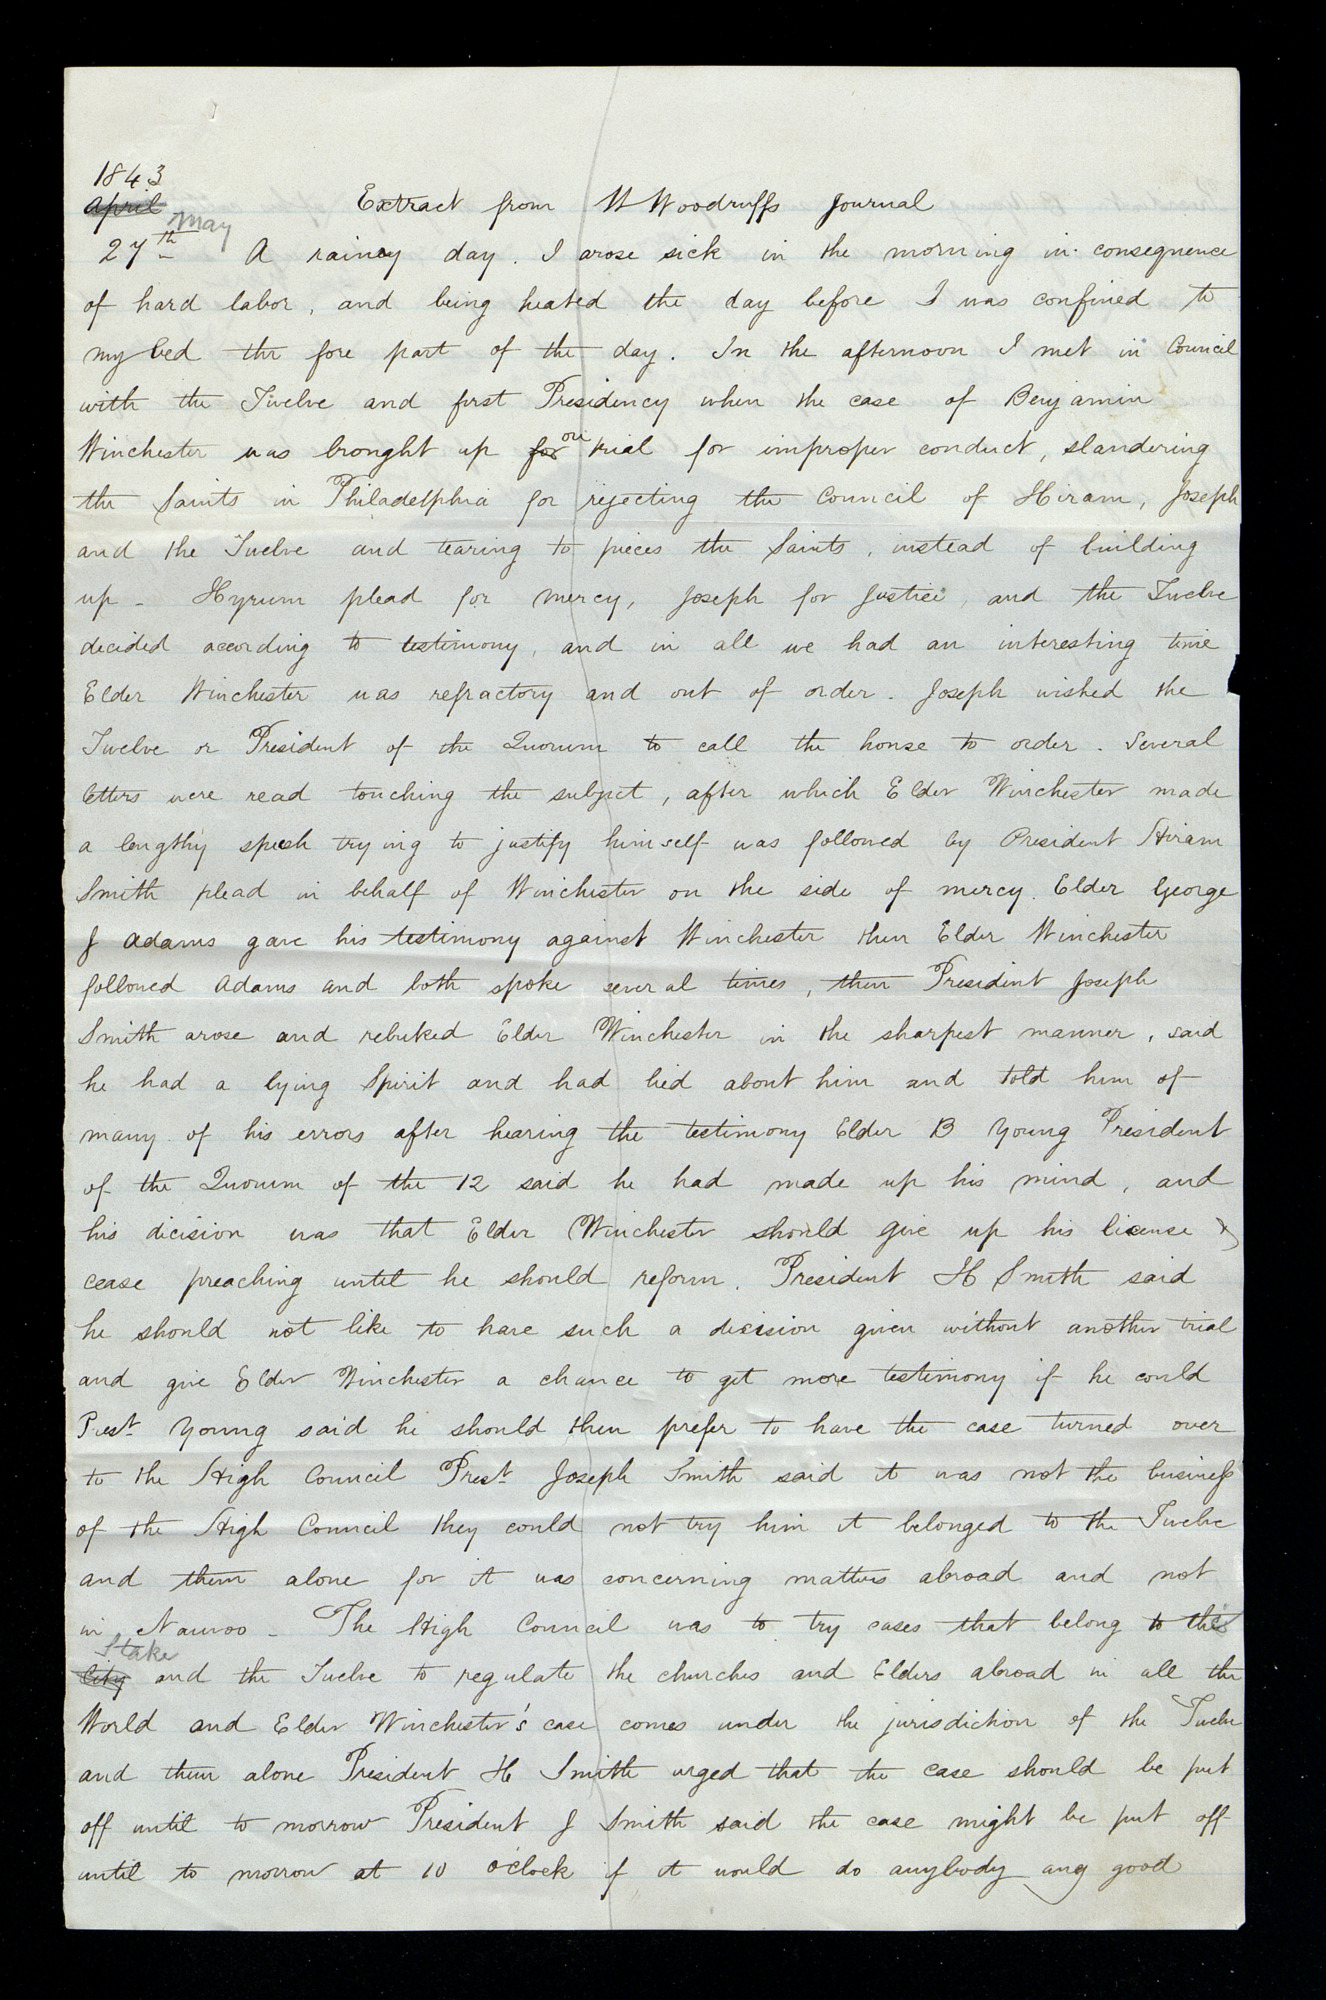 1843
April May
Extract from W Woodruffs Journal
27th A rainey day. I arose sick in the morning in consequence
of hard labor, and being heated the day before I was confined to
my bed the fore part of the day. In the afternoon I met in Council
with the Twelve and first Presidency when the case of Benjamin
Winchester was brought up for on trial for improper conduct, slandering
the Saints in Philadelphia for rejecting the Council of Hiram, Joseph
and the Twelve and tearing to pieces the Saints, instead of building
up - Hyrum plead for mercy, Joseph for Justice, and the Twelve
decided according to testimony, and in all we had an interesting time
Elder Winchester was refractory and out of order. Joseph wished the
Twelve or President of the Quorum to call the house to order. Several
letters were read touching the subject, after which Elder Winchester made
a lengthy speech trying to justify himself was followed by President Hiram
Smith plead in behalf of Winchester on the side of mercy. Elder George
J Adams gave his testimony against Winchester then Elder Winchester
followed Adams and both spoke several times, then President Joseph
Smith arose and rebuked Elder Winchester in the sharpest manner, said
he had a lying Spirit and had lied about him and told him of
many of his errors after hearing the testimony Elder B Young President
of the Quorum of the 12 said he had made up his mind, and
his dicision was that Elder Winchester should give up his license &
cease preaching until he should reform. President H Smith said
he should not like to have such a decision given without another trial
and give Elder Winchester a chance to get more testimony if he could
Prest Young said he should then prefer to have the case turned over
to the High Council Prest Joseph Smith said it was not the business
of the High Council they could not try him it belonged to the Twelve
and them alone for it was concerning matters abroad and not
in Nauvoo - The High Council was to try cases that belong to the
Stake
City and the Twelve to regulate the churches and Elders abroad in all the
World and Elder Winchester's case comes under the jurisdiction of the Twelve
and them alone President H Smith urged that the case should be put
off until to morrow President J Smith said the case might be put off
until to morrow at 10 o'clock if it would do anybody any good